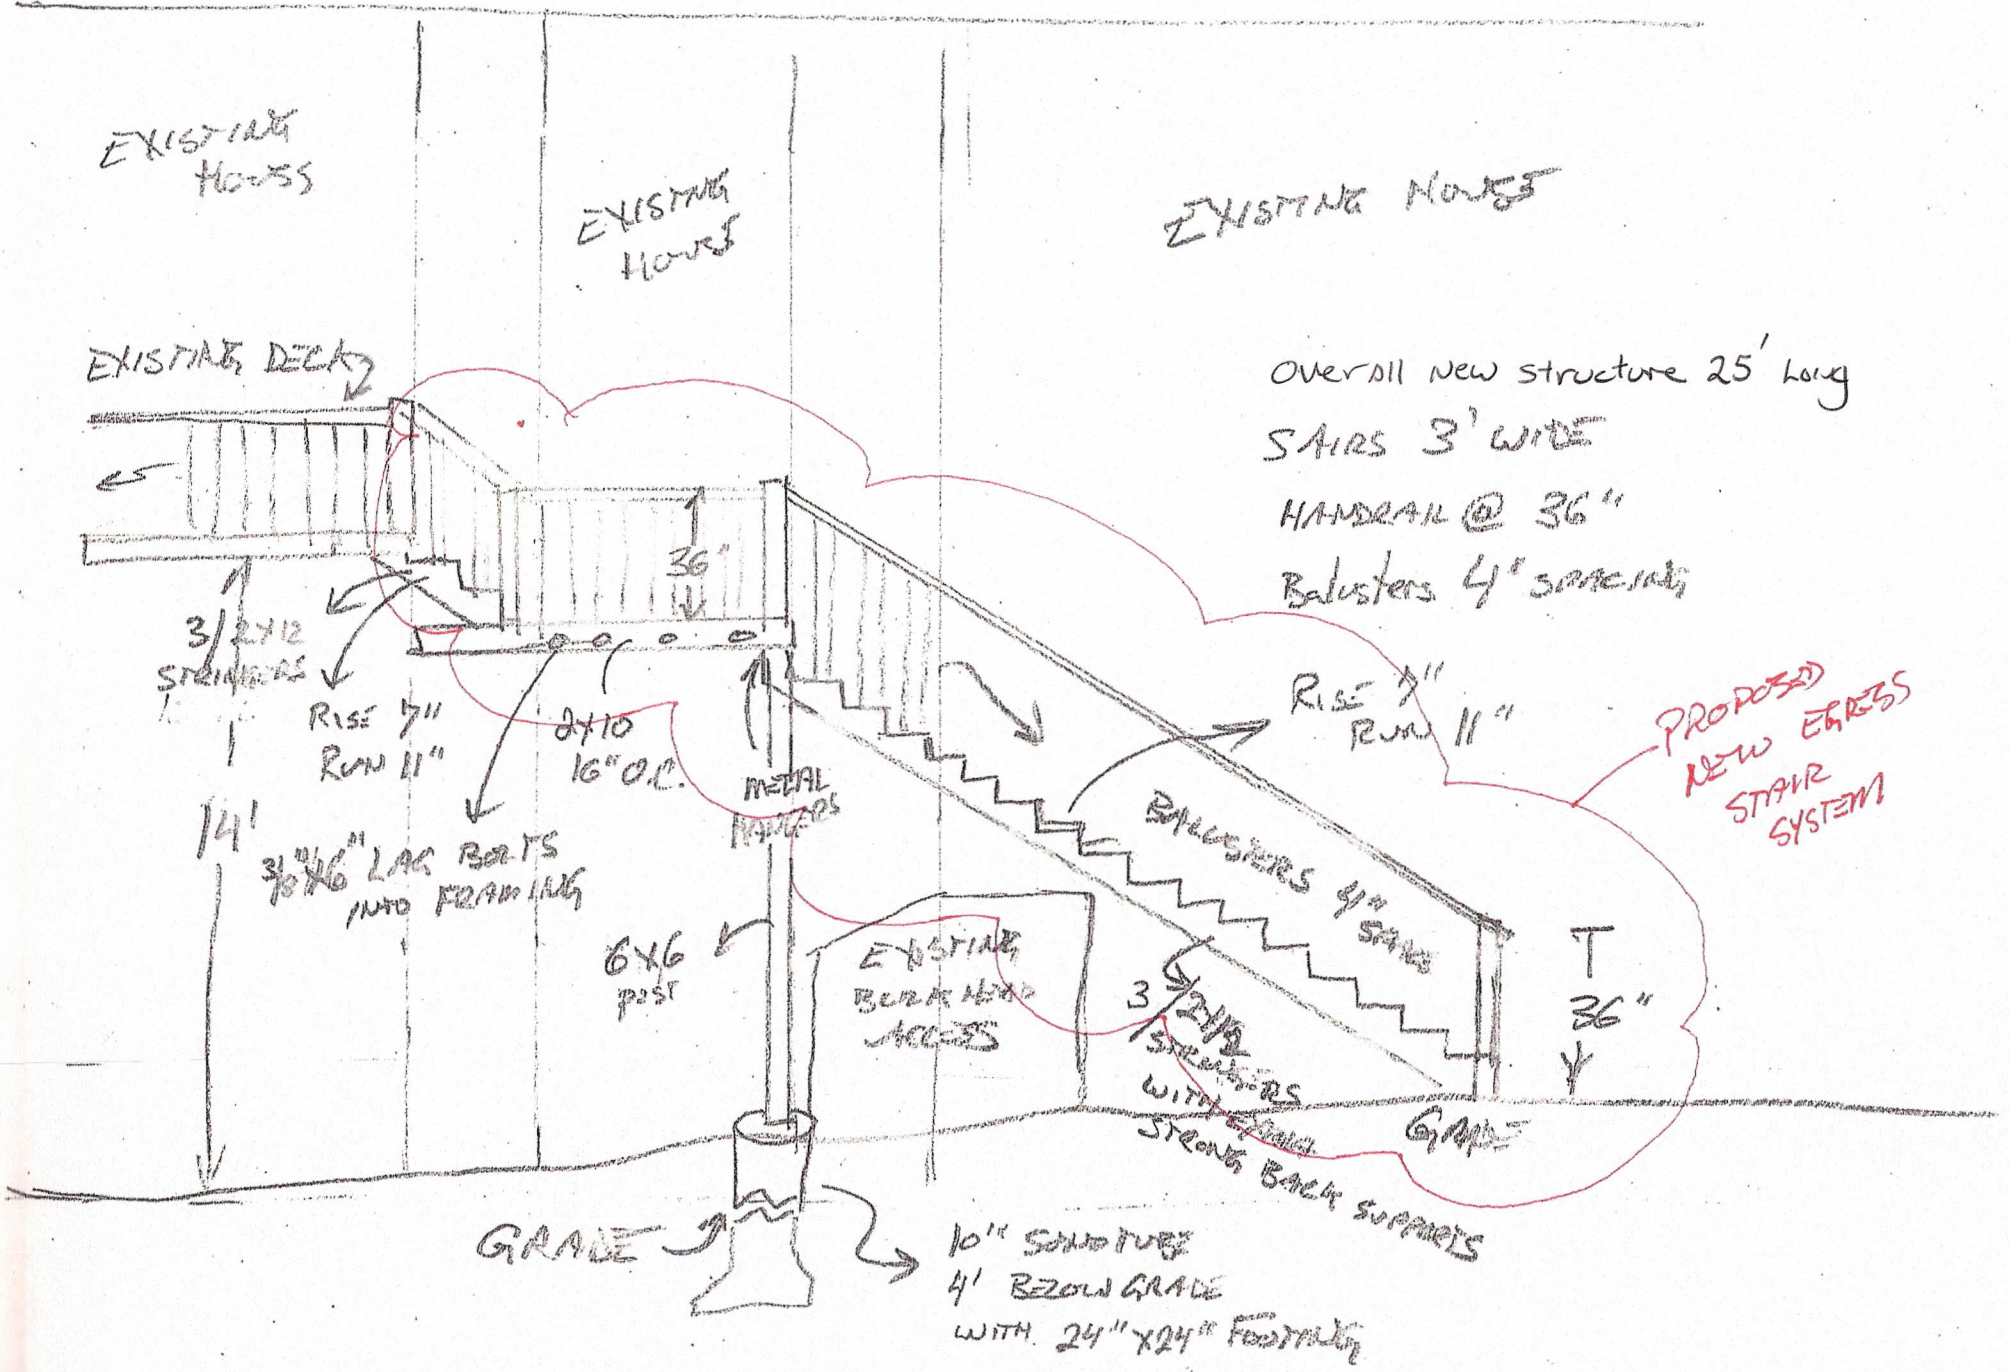 EXISTING
HOUSE
EXISTING
HOUSE
EXISTING HOUSE
EXISTING DECK
Overall New structure 25' Long
SAIRS 3' WIDE
HANDRAIL @ 36"
Balusters 4" SPACING
36"
3/2x12
STRINGERS
RISE 7"
RUN 11"
2x10
16" O.C.
METAL
HANGERS
RISE 7"
RUN 11"
PROPOSED
NEW EGRESS
STAIR
SYSTEM
14'
LAG BOLTS
INTO FRAMING
BALUSTERS 4"
SPACE
6x6
post
EXISTING
BULKHEAD
ACCESS
3/2x12
STRINGERS
WITH
STRONG BACK SUPPORTS
36"
GRADE
GRADE
10" SONOTUBE
4' BELOW GRADE
WITH 24" x 24" FOOTING